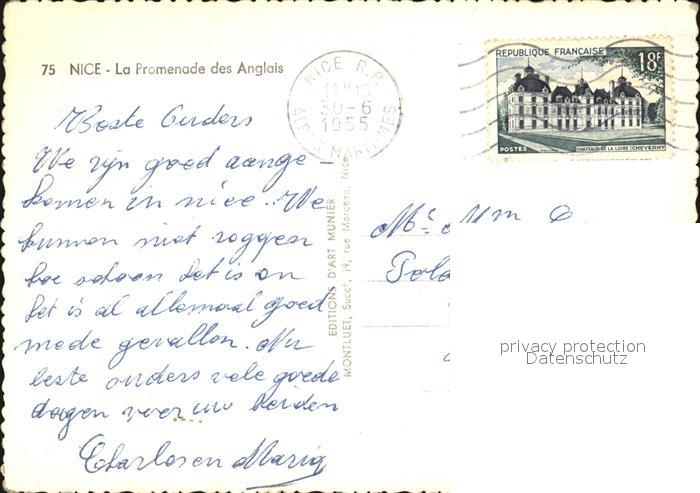 75 NICE - La Promenade des Anglais
Beste Ouders
We zijn goed aange-
komen in nice. We
kunnen niet zeggen
hoe schoon het is en
het is al allemaal goed
mede gevallen. Nu
beste ouders vele goede
dagen voor uw beiden
Charles en Maria
NICE R.P.
30-6
1955
ALPES MARITIMES
REPUBLIQUE FRANÇAISE
18F
POSTES
CHATEAUX DE LA LOIRE: CHEVERNY
EDITIONS D'ART MUNIER
MONTLUET, Succr, 19, rue Marceau, Nice
Mr
privacy protection
Datenschutz